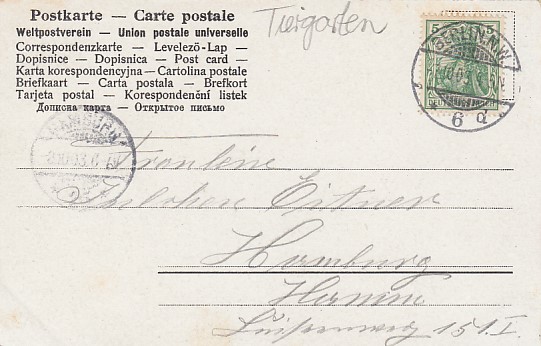 Postkarte — Carte postale
Weltpostverein — Union postale universelle
Correspondenzkarte — Levelező-Lap —
Dopisnice — Dopisnica — Post card —
Karta korespondencyjna — Cartolina postale
Briefkaart — Carta postala — Brefkort
Tarjeta postal — Korespondenční listek
Дописна карта — Открытое письмо
Tiergarten
5 5
BERLIN N.W.
DEUTSCHES REICH
* 6 d *
HAMBURG
Fräulein
Eitner
Hamburg
Hamm
Luisenweg 151 I